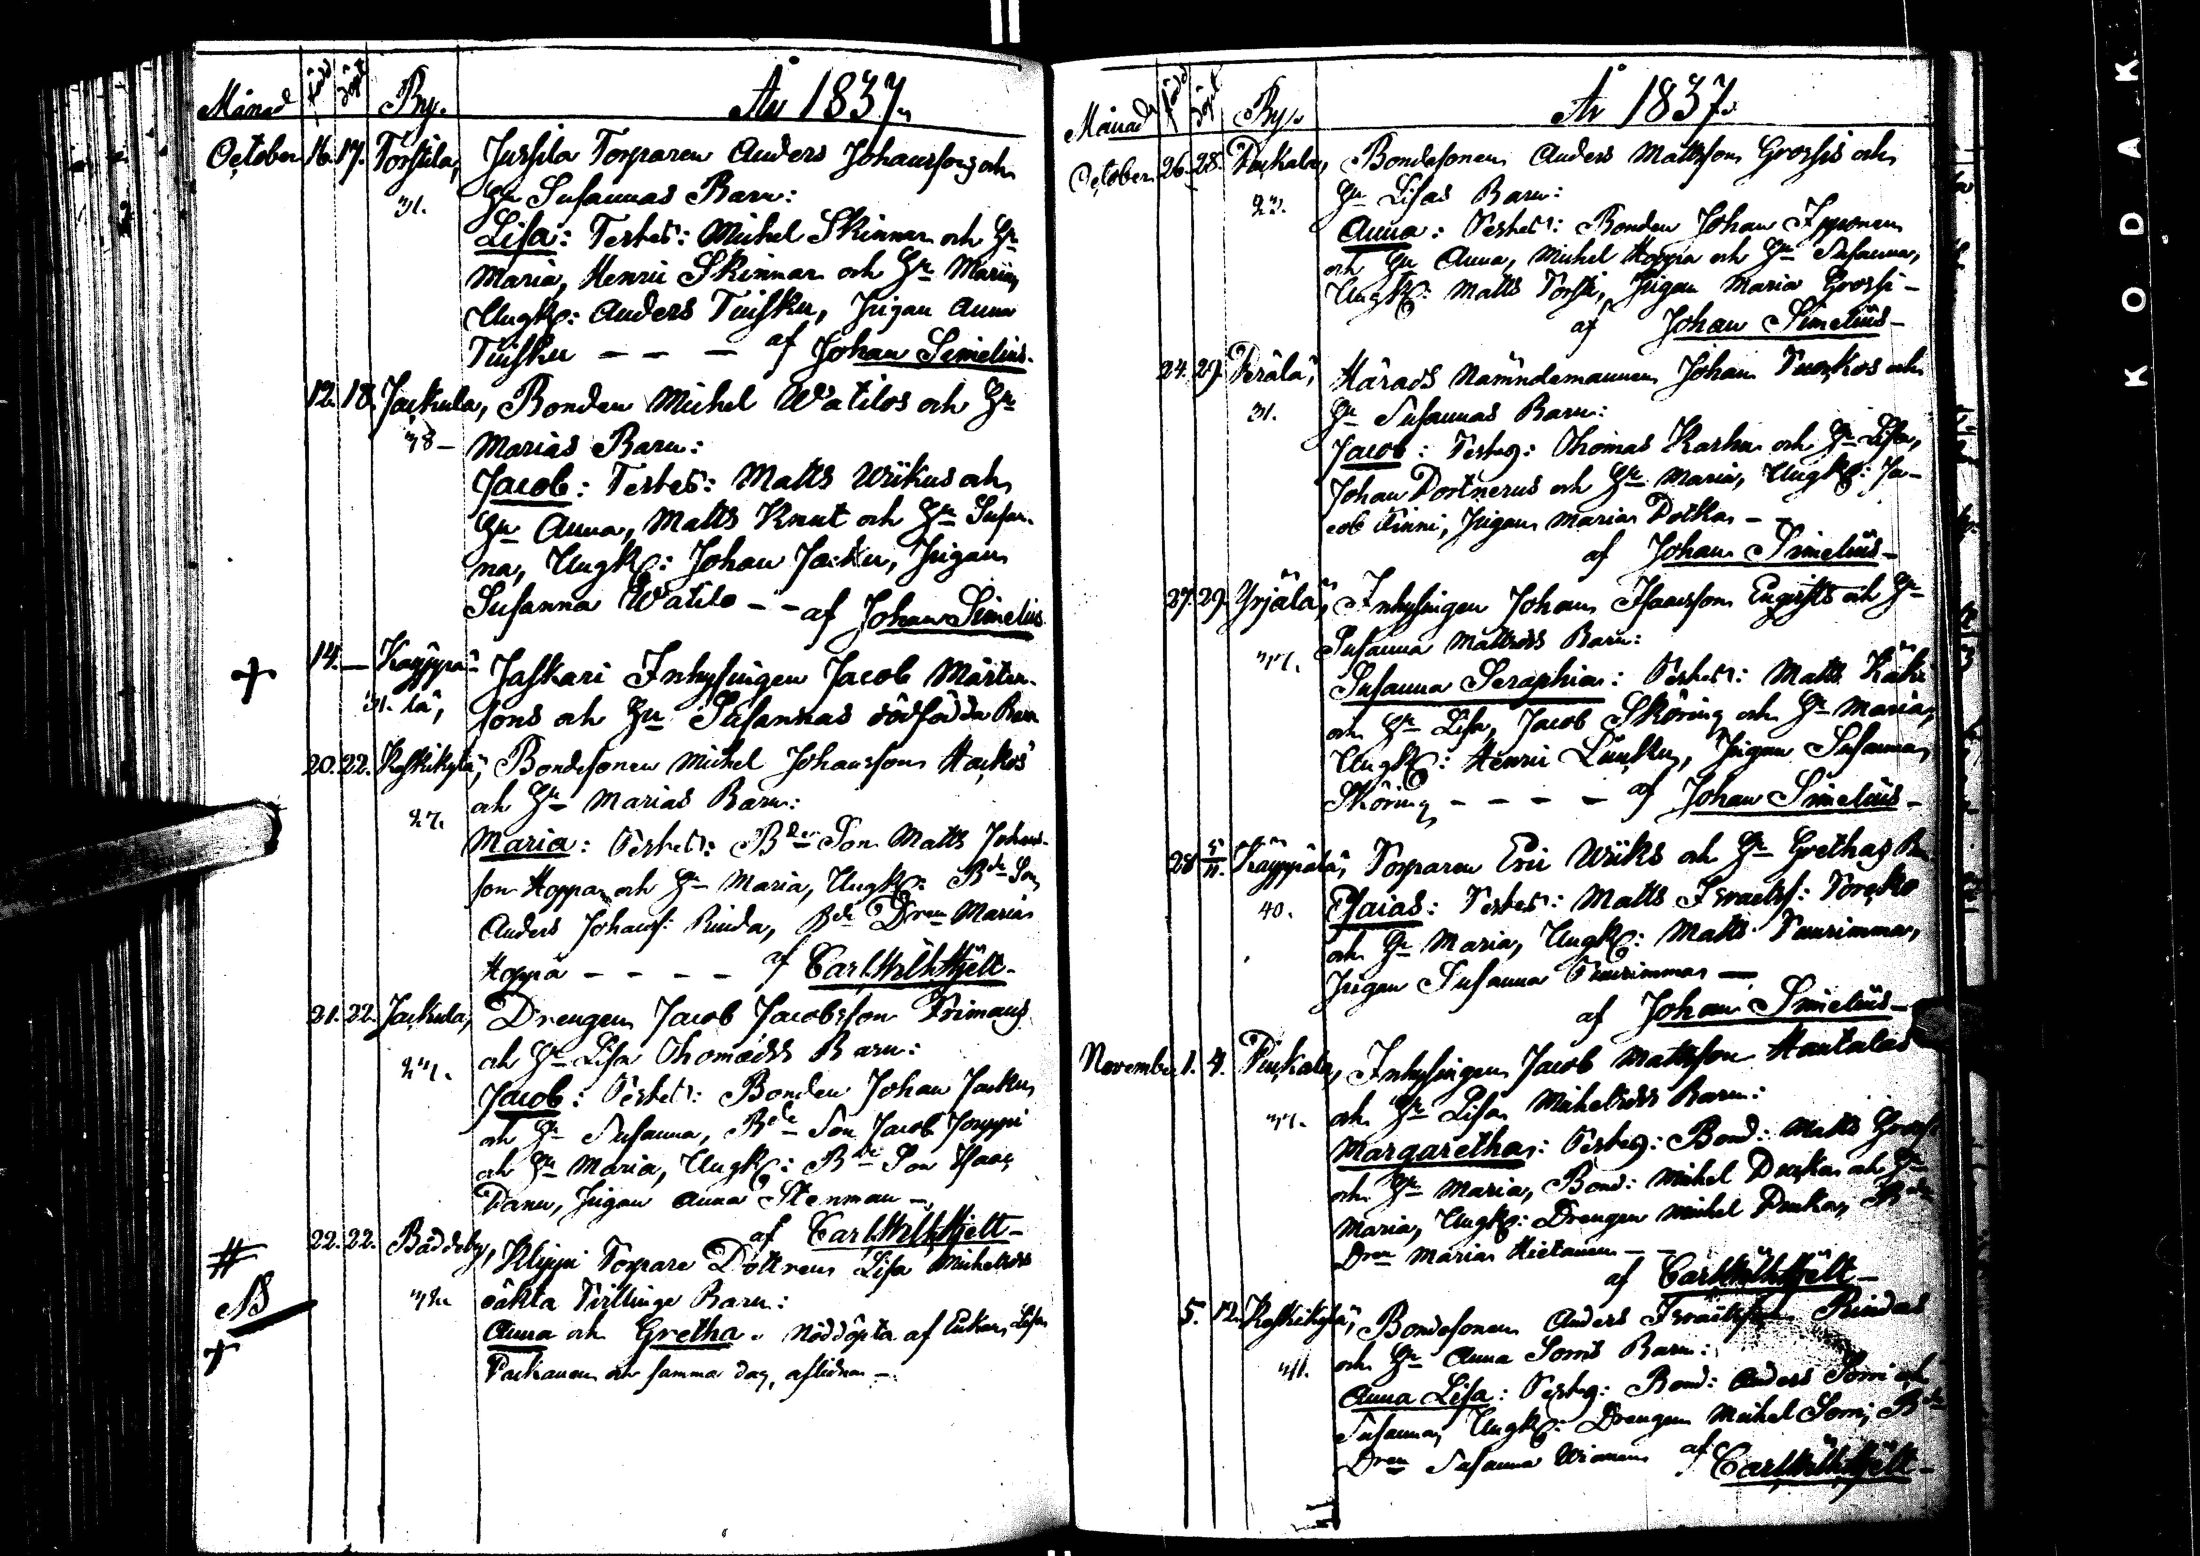 Månad född döpt By. År 1837.
October 16. 17. Torstila, Jussila Torparen Anders Johanssons och
31. Hu Susannas Barn:
Lisa: Testes: Michel Skinnar och Hu
Maria, Henric Skinnar och Hu Maria,
Ungk: Anders Tuisku, Pigan Anna
Tuisku — — — af Johan Simelius.
12. 18. Jackula, Bonden Michel Watilos och Hu
38 — Marias Barn:
Jacob: Testes: Matts Wiikus och
Hu Anna, Matts Knut och Hu Susan-
na, Ungk: Johan Jacku, Pigan
Susanna Watilo - - af Johan Simelius.
+ 14. — Käyppä- Jaskari Inhysingen Jacob Mårten-
31. lä, sons och Hu Susannas dödfödda Barn
20. 22. Koskikylä, Bondesonen Michel Johansson Hackos
27. och Hu Marias Barn:
Maria: Testes: Bde Son Matts Johans-
son Hoppa och Hu Maria, Ungk: Bde Son
Anders Johanss: Rinda, Bde Dren Maria
Hoppa — — — — af Carl Wilh Hjelt —
21. 22. Jackula, Drengen Jacob Jacobsson Frimans
och Hu Lisa Thomædrs Barn:
Jacob: Testes: Bonden Johan Jacku
och Hu Susanna, Bde Son Jacob Jouppi
och Hu Maria, Ungk: Bde Son Isaac
Panu, Pigan Anna Stenman —
af Carl Wilh Hjelt —
# 22. 22. Båddeby, Klippi Torpare Dottren Lisa Michelsdrs
NB oäkta Tvillinge Barn:
+ Anna och Gretha. Nöddöpta af Enkan Lisa
och samma dag, aflidna —
Månad född döpt By. År 1837.
October 26. 28. Puckala, Bondesonen Anders Mattsson Grossis och
23. Hu Lisas Barn:
Anna: Testes: Bonden Johan Ypponen
och Hu Anna, Michel Hoppa och Hu Susanna,
Ungk: Matts Torsti, Pigan Maria Grossi —
af Johan Simelius —
24. 29. Perälä, Härads Nämndemannen Johan Tuorkos och
31. Hu Susannas Barn:
Jacob: Testes: Thomas Karhu och Hu Lisa,
Johan Portnerus och Hu Maria, Ungk: Ja-
cob Finni, Pigan Maria Potka — -
af Johan Simelius —
27. 29. Yrjälä, Inhysingen Johan Isaacsson Engrifts och Hu
Susanna Mattsdrs Barn:
Susanna Seraphia: Testes: Matts Käki
och Hu Lisa, Jacob Sköring och Hu Maria,
Ungk: Henric Luucku, Pigan Susanna
Sköring — — — — af Johan Simelius —
28 5/11. Käyppälä, Torparen Eric Wiiks och Hu Grethas Barn
40. Esaias: Testes: Matts Israelss: Torcko
och Hu Maria, Ungk: Matts Tuurinmaa,
Pigan Susanna Tuurinmaa —
af Johan Simelius —
November 1. 4. Puckala, Inhysingen Jacob Mattsson Hautalas
och Hu Lisa Michelsdrs Barn:
Margaretha: Testes: Bond: Matts Grossi
och Hu Maria, Bond: Michel Ducka och Hu
Maria, Ungk: Drengen Michel Ducka, Bde
Dren Maria Hietanen — -
af Carl Wilh Hjelt —
5. 12. Koskikylä, Bondesonen Anders Israelsson Rindas
och Hu Anna Sorris Barn:
Anna Lisa: Testes: Bond: Anders Sorri och
Susanna, Ungk: Drengen Michel Sorri, Bde
Dren Susanna af Carl Wilh Hjelt —
KODAK